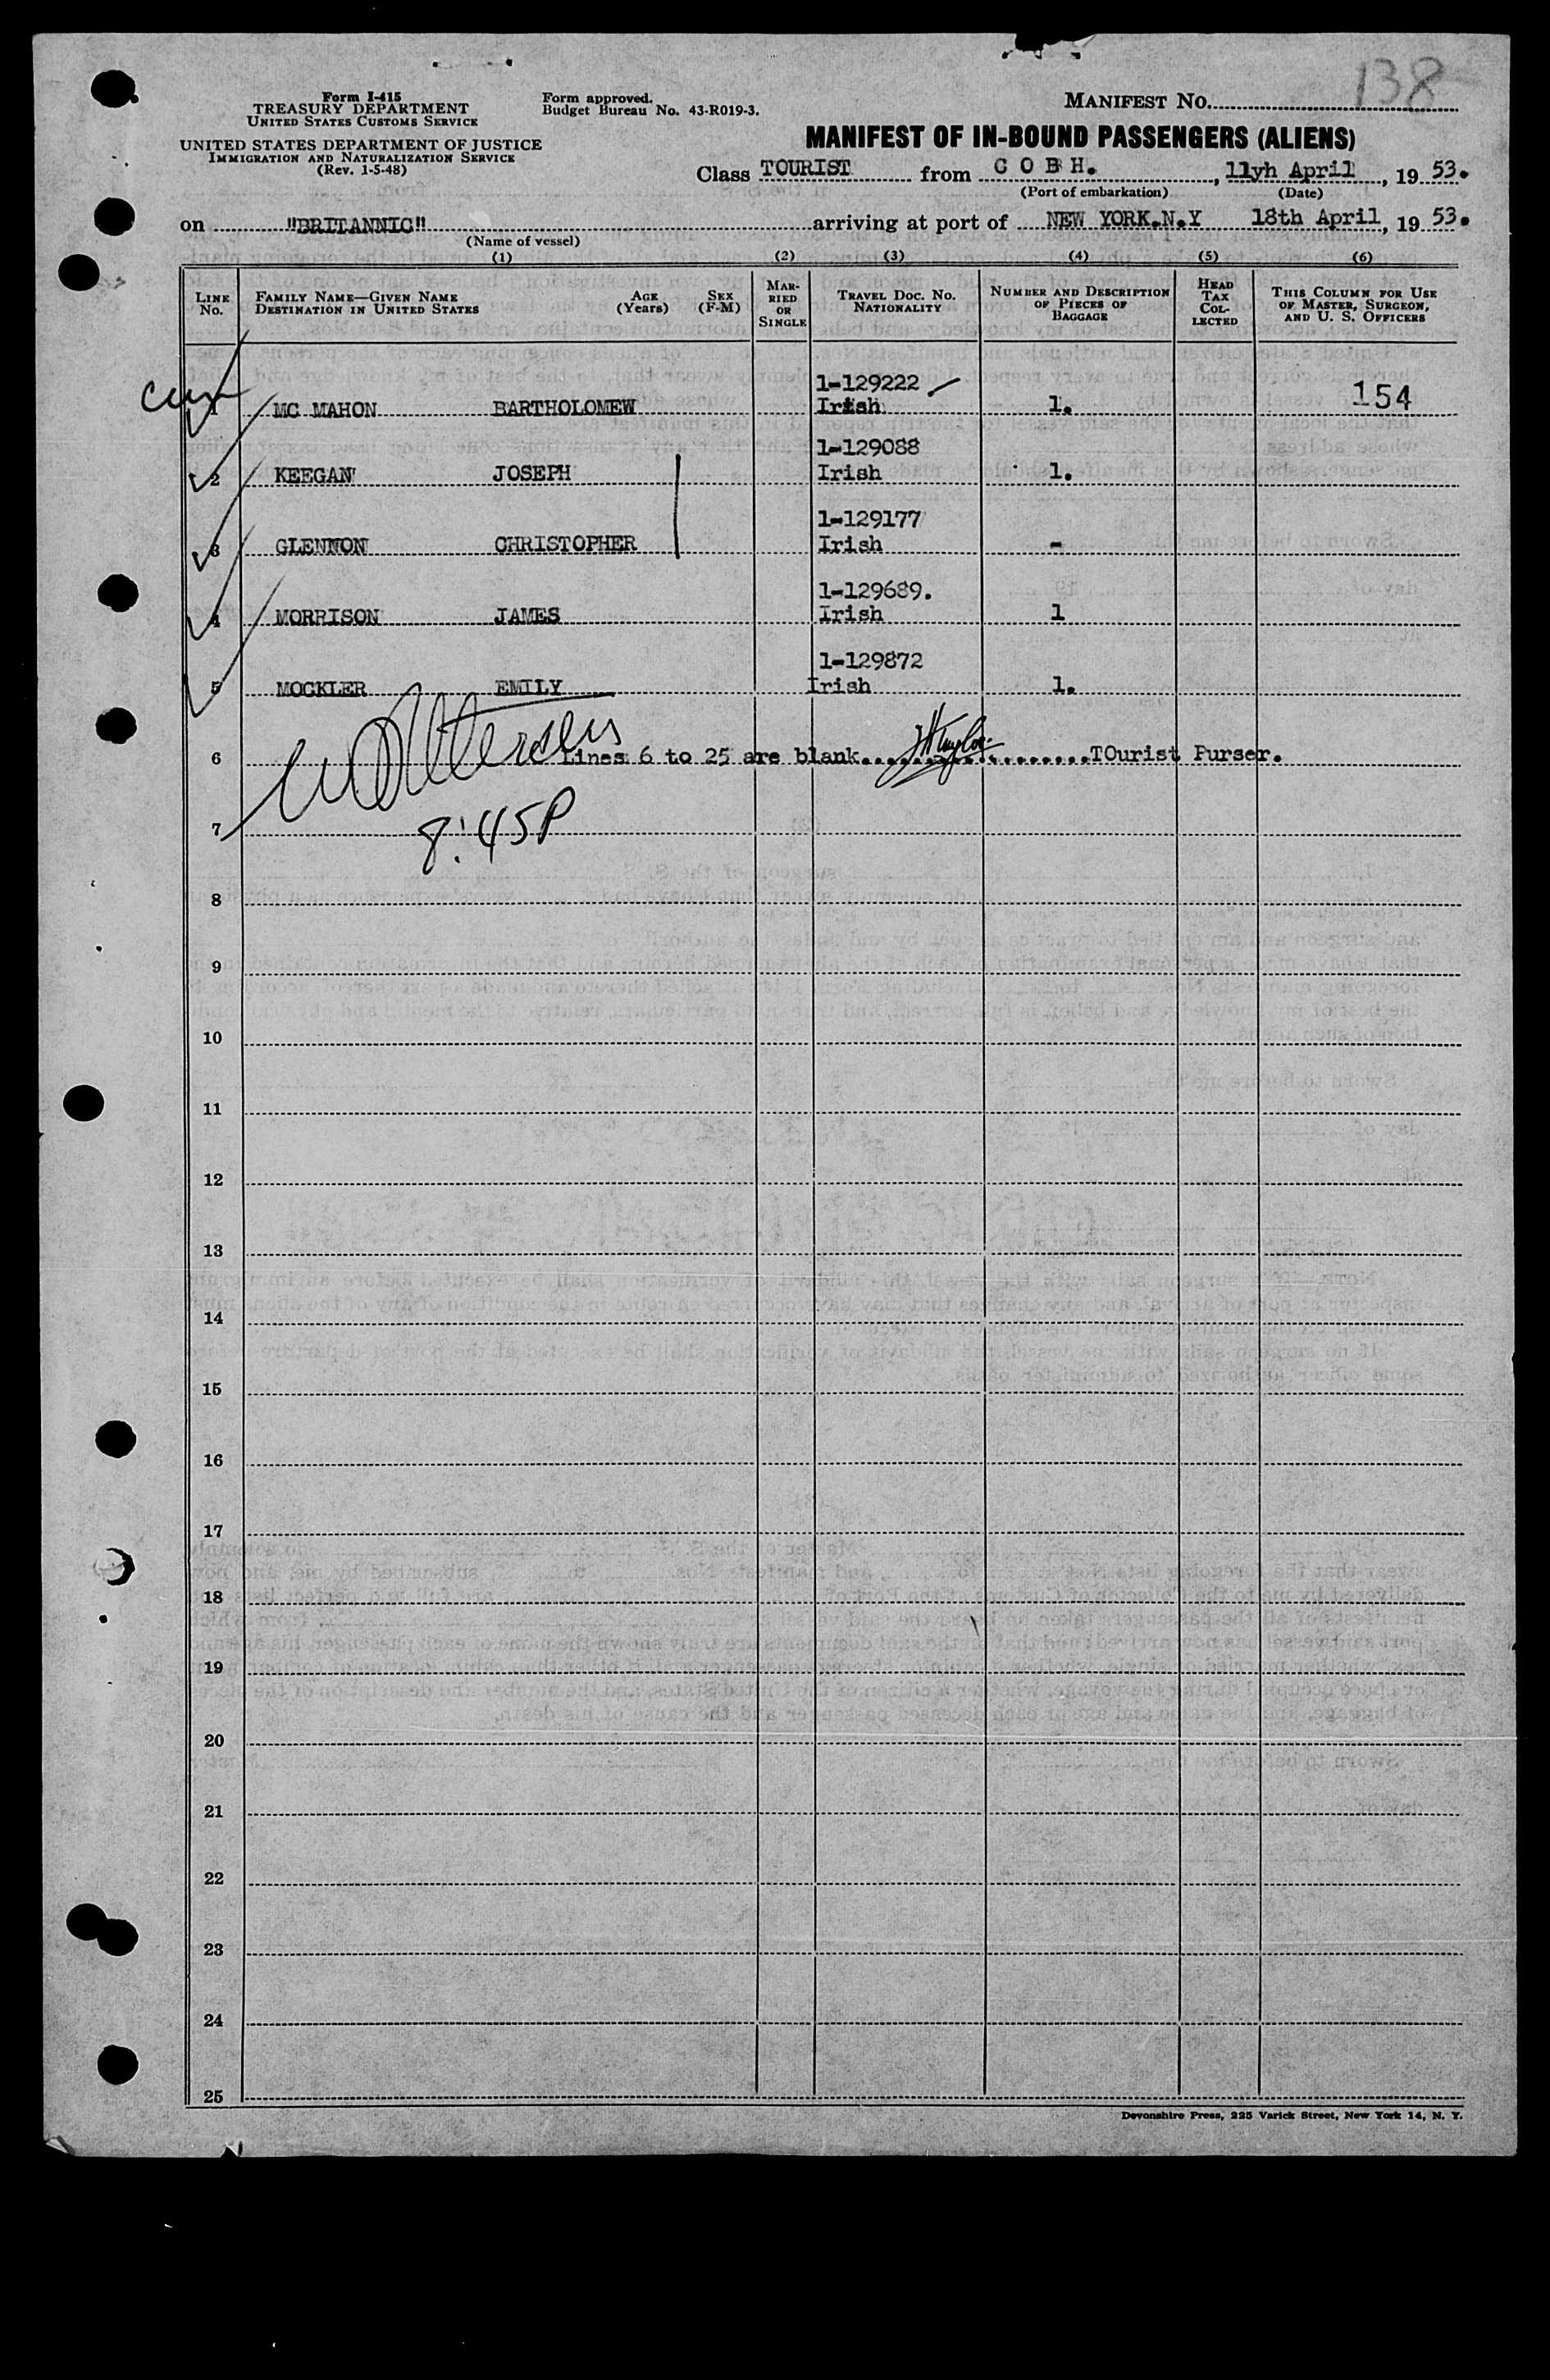 138
Form I-415
TREASURY DEPARTMENT
UNITED STATES CUSTOMS SERVICE
UNITED STATES DEPARTMENT OF JUSTICE
IMMIGRATION AND NATURALIZATION SERVICE
(Rev. 1-5-48)
Form approved.
Budget Bureau No. 43-R019-3.
MANIFEST NO.
MANIFEST OF IN-BOUND PASSENGERS (ALIENS)
Class TOURIST from C O B H. , 11yh April , 19 53.
(Port of embarkation) (Date)
on "BRITANNIC" arriving at port of NEW YORK.N.Y 18th April, 19 53.
(Name of vessel)
(1) (2) (3) (4) (5) (6)
LINE NO.
FAMILY NAME—GIVEN NAME
DESTINATION IN UNITED STATES
AGE (Years)
SEX (F-M)
MARRIED OR SINGLE
TRAVEL DOC. NO.
NATIONALITY
NUMBER AND DESCRIPTION OF PIECES OF BAGGAGE
HEAD TAX COLLECTED
THIS COLUMN FOR USE OF MASTER, SURGEON, AND U. S. OFFICERS
1-129222
1 MC MAHON BARTHOLOMEW Irish 1. 154
1-129088
2 KEEGAN JOSEPH Irish 1.
1-129177
3 GLENNON CHRISTOPHER Irish -
1-129689.
4 MORRISON JAMES Irish 1
1-129872
5 MOCKLER EMILY Irish 1.
6 Lines 6 to 25 are blank. TOurist Purser.
7
8:45P
8
9
10
11
12
13
14
15
16
17
18
19
20
21
22
23
24
25
Devonshire Press, 225 Varick Street, New York 14, N. Y.